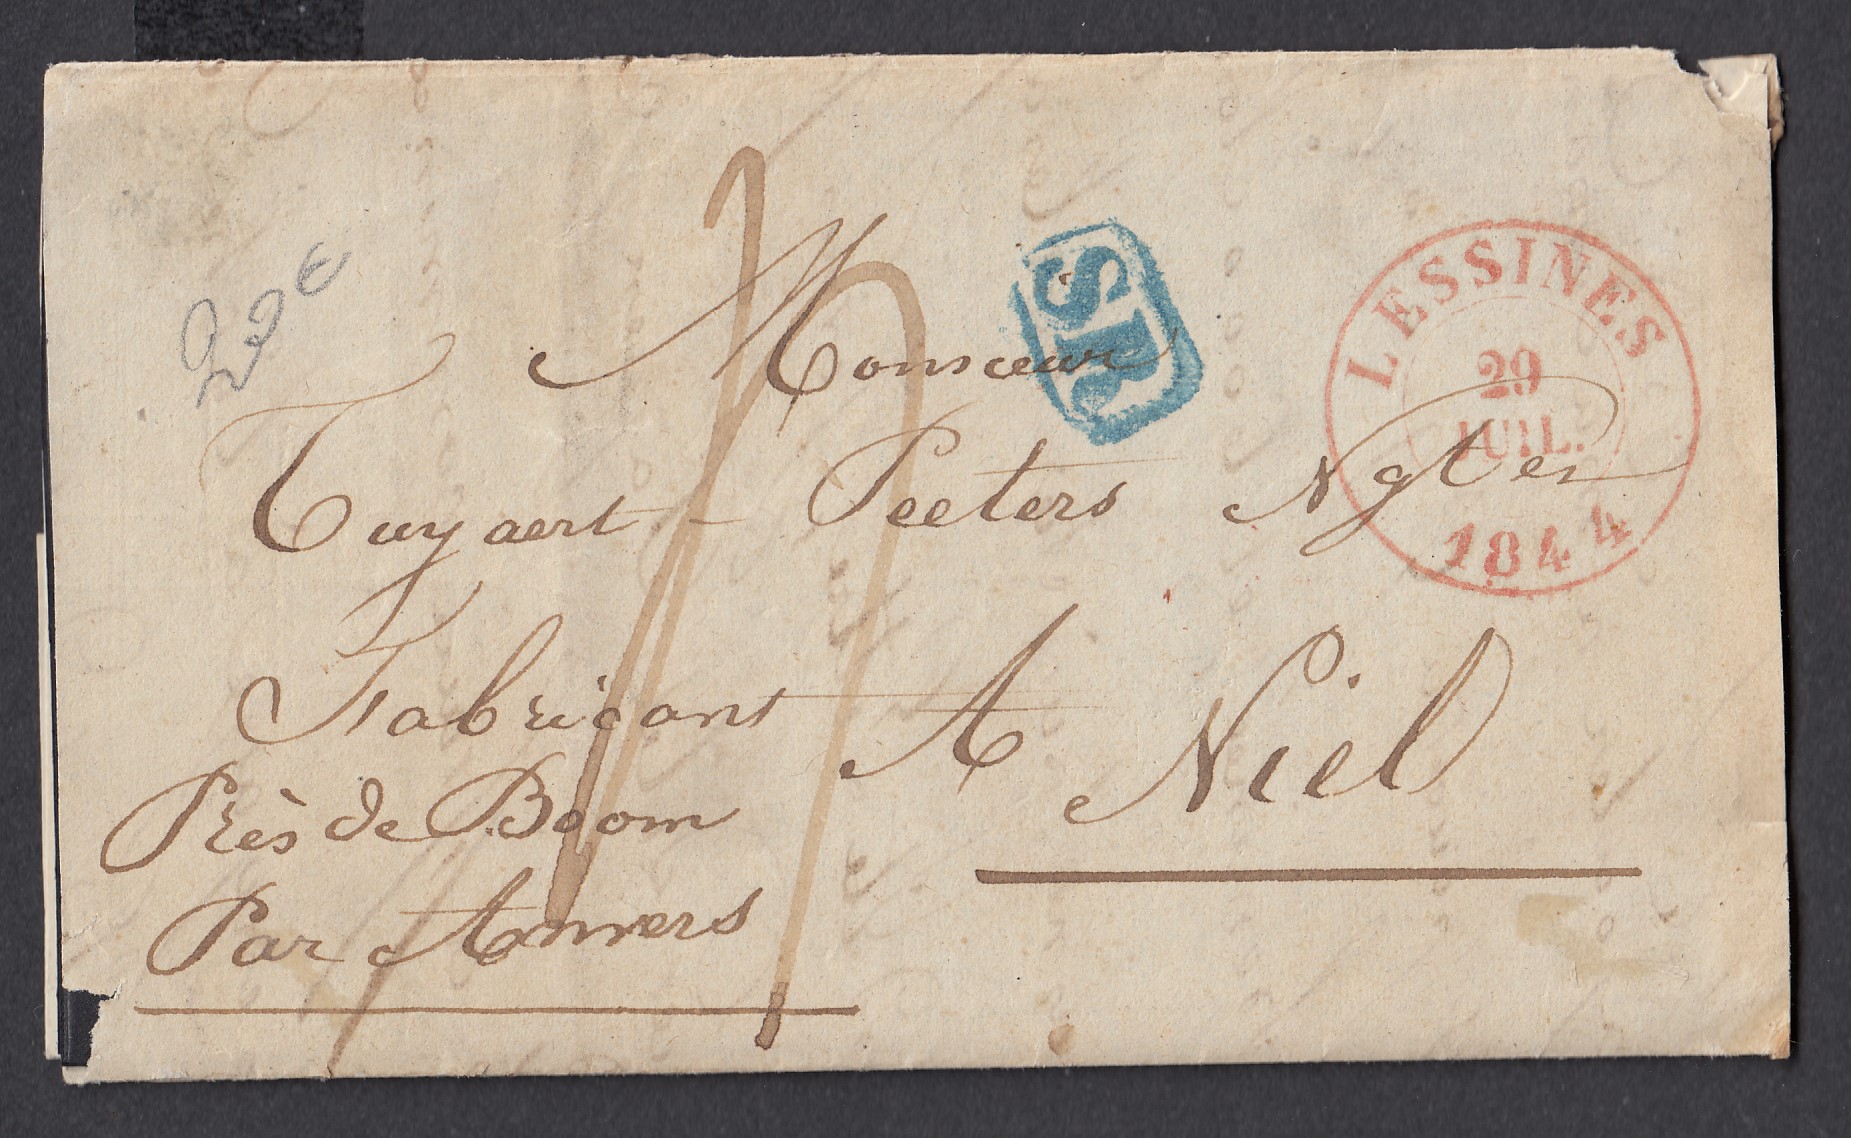 22 €
SR
LESSINES
29
JUIL.
1844
Monsieur
Tuyaert - Peeters Ngten
Fabricant A Niel
Près de Boom
Par Anvers